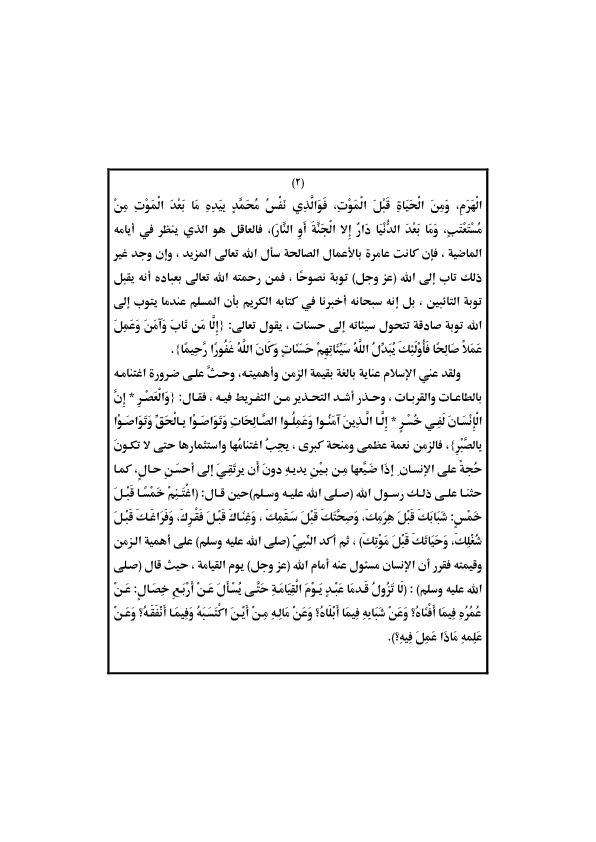 (٢)
الْهَرَمِ، وَمِنَ الْحَيَاةِ قَبْلَ الْمَوْتِ، فَوَالَّذِي نَفْسُ مُحَمَّدٍ بِيَدِهِ مَا بَعْدَ الْمَوْتِ مِنْ
مُسْتَعْتَبٍ، وَمَا بَعْدَ الدُّنْيَا دَارٌ إِلا الْجَنَّةَ أَوِ النَّارَ)، فالعاقل هو الذي ينظر في أيامه
الماضية ، فإن كانت عامرة بالأعمال الصالحة سأل الله تعالى المزيد ، وإن وجد غير
ذلك تاب إلى الله (عز وجل) توبة نصوحًا ، فمن رحمته الله تعالى بعباده أنه يقبل
توبة التائبين ، بل إنه سبحانه أخبرنا في كتابه الكريم بأن المسلم عندما يتوب إلى
الله توبة صادقة تتحول سيئاته إلى حسنات ، يقول تعالى: {إِلَّا مَن تَابَ وَآمَنَ وَعَمِلَ
عَمَلًا صَالِحًا فَأُوْلَئِكَ يُبَدِّلُ اللَّهُ سَيِّئَاتِهِمْ حَسَنَاتٍ وَكَانَ اللَّهُ غَفُورًا رَّحِيمًا}.
ولقد عني الإسلام عناية بالغة بقيمة الزمن وأهميته، وحثَّ على ضرورة اغتنامه
بالطاعات والقربات ، وحذر أشد التحذير من التفريط فيه ، فقال: {وَالْعَصْرِ * إِنَّ
الْإِنْسَانَ لَفِي خُسْرٍ * إِلَّا الَّذِينَ آمَنُوا وَعَمِلُوا الصَّالِحَاتِ وَتَوَاصَوْا بِالْحَقِّ وَتَوَاصَوْا
بِالصَّبْرِ}، فالزمن نعمة عظمى ومنحة كبرى ، يجبُ اغتنامُها واستثمارها حتى لا تكونَ
حُجةً على الإنسانِ إذَا ضَيَّعها مِن بيْنِ يديهِ دونَ أَن يرتَقِيَ إلى أحسَنِ حالٍ، كما
حثنا على ذلك رسول الله (صلى الله عليه وسلم)حين قال: (اغْتَنِمْ خَمْسًا قَبْلَ
خَمْسٍ: شَبَابَكَ قَبْلَ هِرَمِكَ، وَصِحَّتَكَ قَبْلَ سَقَمِكَ ، وَغِنَاكَ قَبْلَ فَقْرِكَ، وَفَرَاغَكَ قَبْلَ
شُغْلِكَ، وَحَيَاتَكَ قَبْلَ مَوْتِكَ) ، ثم أكد النَّبيّ (صلى الله عليه وسلم) على أهمية الزمن
وقيمته فقرر أن الإنسان مسئول عنه أمام الله (عز وجل) يوم القيامة ، حيث قال (صلى
الله عليه وسلم) : (لَا تَزُولُ قَدمَا عَبْدٍ يَوْمَ الْقِيَامَةِ حَتَّى يُسْأَلَ عَنْ أَرْبَعِ خِصَالٍ: عَنْ
عُمُرُهِ فِيمَا أَفْنَاهُ؟ وَعَنْ شَبَابِهِ فِيمَا أَبْلَاهُ؟ وَعَنْ مَالِهِ مِنْ أَيْنَ اكْتَسَبَهُ وَفِيمَا أَنْفَقَهُ؟ وَعَنْ
عَلِمهِ مَاذَا عَمِلَ فِيهِ؟).